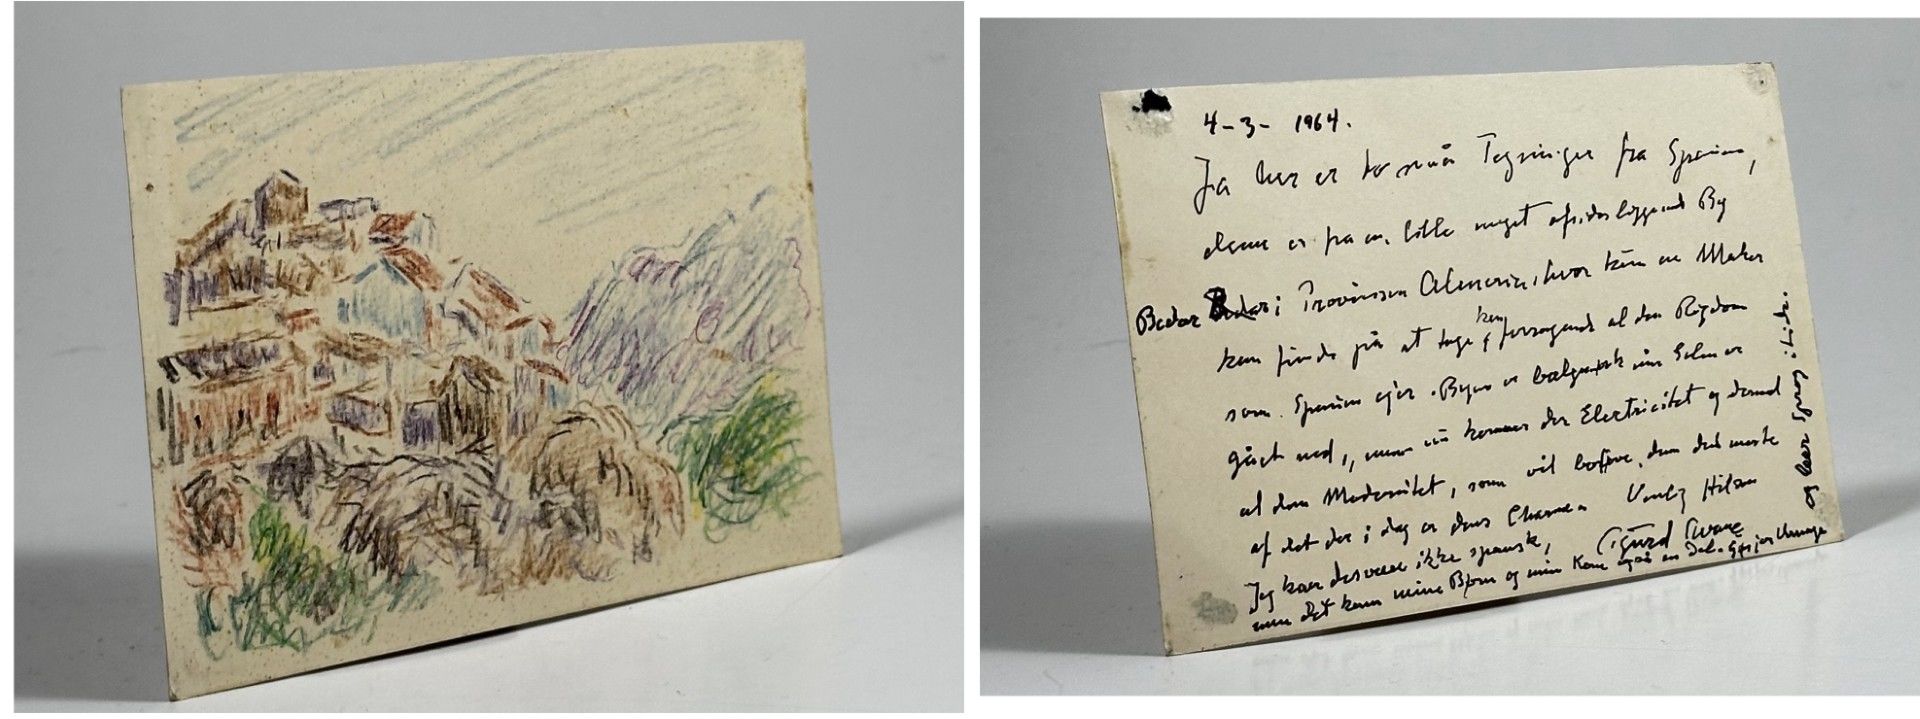 4-3- 1964.
Ja her er to små Tegninger fra Spanien,
denne er fra en lille meget afsidesliggende By
Bedar i Provinsen Almeria, hvor kun en Maler
kan finde på at tage hen, forsøgende al den Rigdom
som Spanien ejer. Byen er en er
gået ned, men nu kommer der Electricitet og dermed
al den Modernitet, som vil den det meste
af det der i dag er dens Charme. Venlig Hilsen
Jeg kan desværre ikke spansk, Sigurd Swane
men det kan mine Børn og min Kone også en Del
og læser Sprog